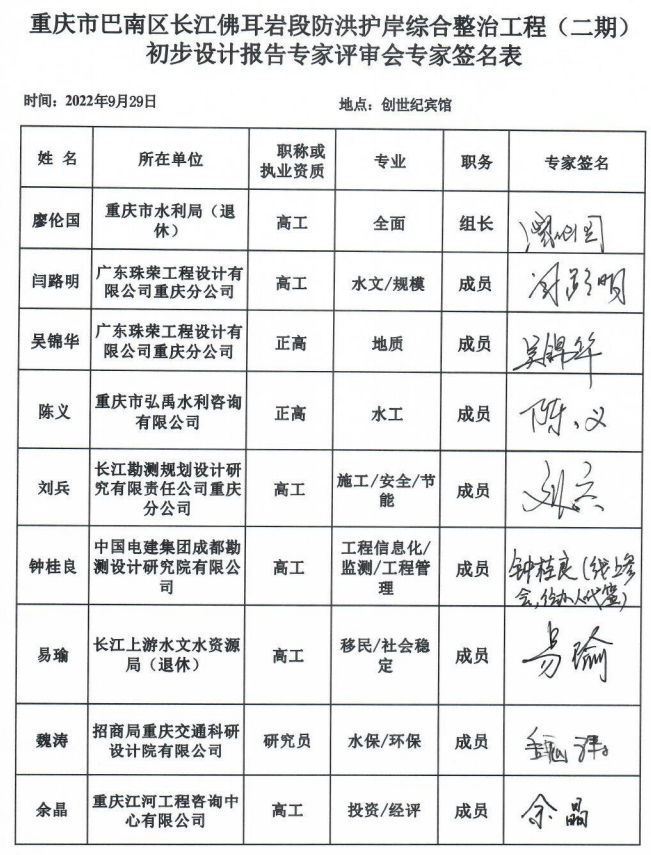 重庆市巴南区长江佛耳岩段防洪护岸综合整治工程（二期）
初步设计报告专家评审会专家签名表
时间：2022年9月29日 地点：创世纪宾馆
姓 名 所在单位 职称或 专业 职务 专家签名
执业资质
廖伦国 重庆市水利局（退 高工 全面 组长 廖伦国
休）
闫路明 广东珠荣工程设计有 高工 水文/规模 成员 闫路明
限公司重庆分公司
吴锦华 广东珠荣工程设计有 正高 地质 成员 吴锦华
限公司重庆分公司
陈义 重庆市弘禹水利咨询 正高 水工 成员 陈义
有限公司
刘兵 长江勘测规划设计研 高工 施工/安全/节 成员 刘兵
究有限责任公司重庆 能
分公司
钟桂良 中国电建集团成都勘 高工 工程信息化/ 成员 钟桂良（线上参
测设计研究院有限公 监测/工程管 会，经办人代签）
司 理
易瑜 长江上游水文水资源 高工 移民/社会稳 成员 易瑜
局（退休） 定
魏涛 招商局重庆交通科研 研究员 水保/环保 成员 魏涛
设计院有限公司
余晶 重庆江河工程咨询中 高工 投资/经评 成员 余晶
心有限公司